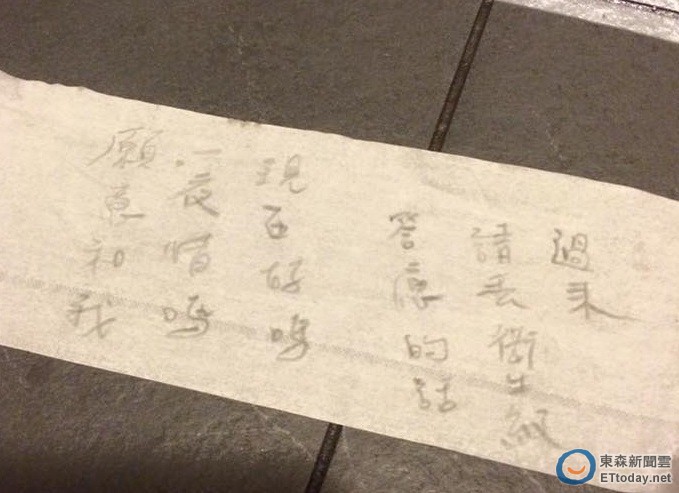 願意和我
一夜情嗎
現在好嗎
答應的話
請丟衛生紙
過來
東森新聞雲
ETtoday.net